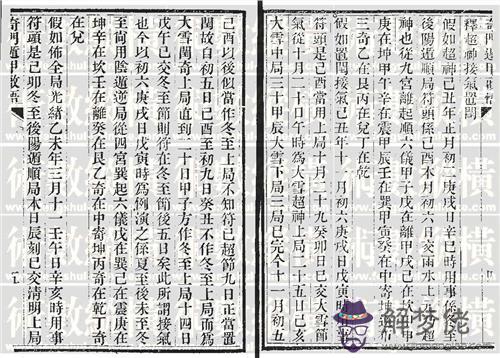 奇門遁甲啟悟
釋超神接氣置閏
假如超神己丑年正月初二庚戌日辛巳時用事係冬至
後陽遁順局符頭係己酉本月初六日交雨水上局超
神也從九宮離起順六儀甲子戊在離甲戌己在坎甲申
庚在坤甲午辛在震甲辰壬在巽甲寅癸在中寄坤
三奇乙在艮丙在兌丁在乾
假如置閏接氣己丑年十一月初六庚戌日戊寅時
符頭是己酉當用上局十月二十九癸卯日已交大雪節
氣從十月二十日午時為大雪超神上局二十五日己亥
大雪中局三十甲辰大雪下局三局已完今十一月初五
己酉以後似當作冬至上局不知符已超節九日正當置
閏故自初五日己酉至初九日癸丑不作冬至上局而為
大雪閏奇上局直到二十日甲子方作冬至上局十四日
戊午已交冬至節則符在節後五日矣此所謂接氣
也今以初六庚戌日戊寅時為例演之係夏至後未至冬
至尚用陰遁逆局從四宮巽起六儀戊在巽己在震庚在
坤辛在坎壬在離癸在艮乙奇在中寄坤丙奇在乾丁奇
在兌
假如佈全局光緒乙未年三月十一壬午日辛亥時用事
符頭是己卯冬至後陽遁順局本日辰刻已交清明上局
奇門遁甲啟悟
九
解夢佬